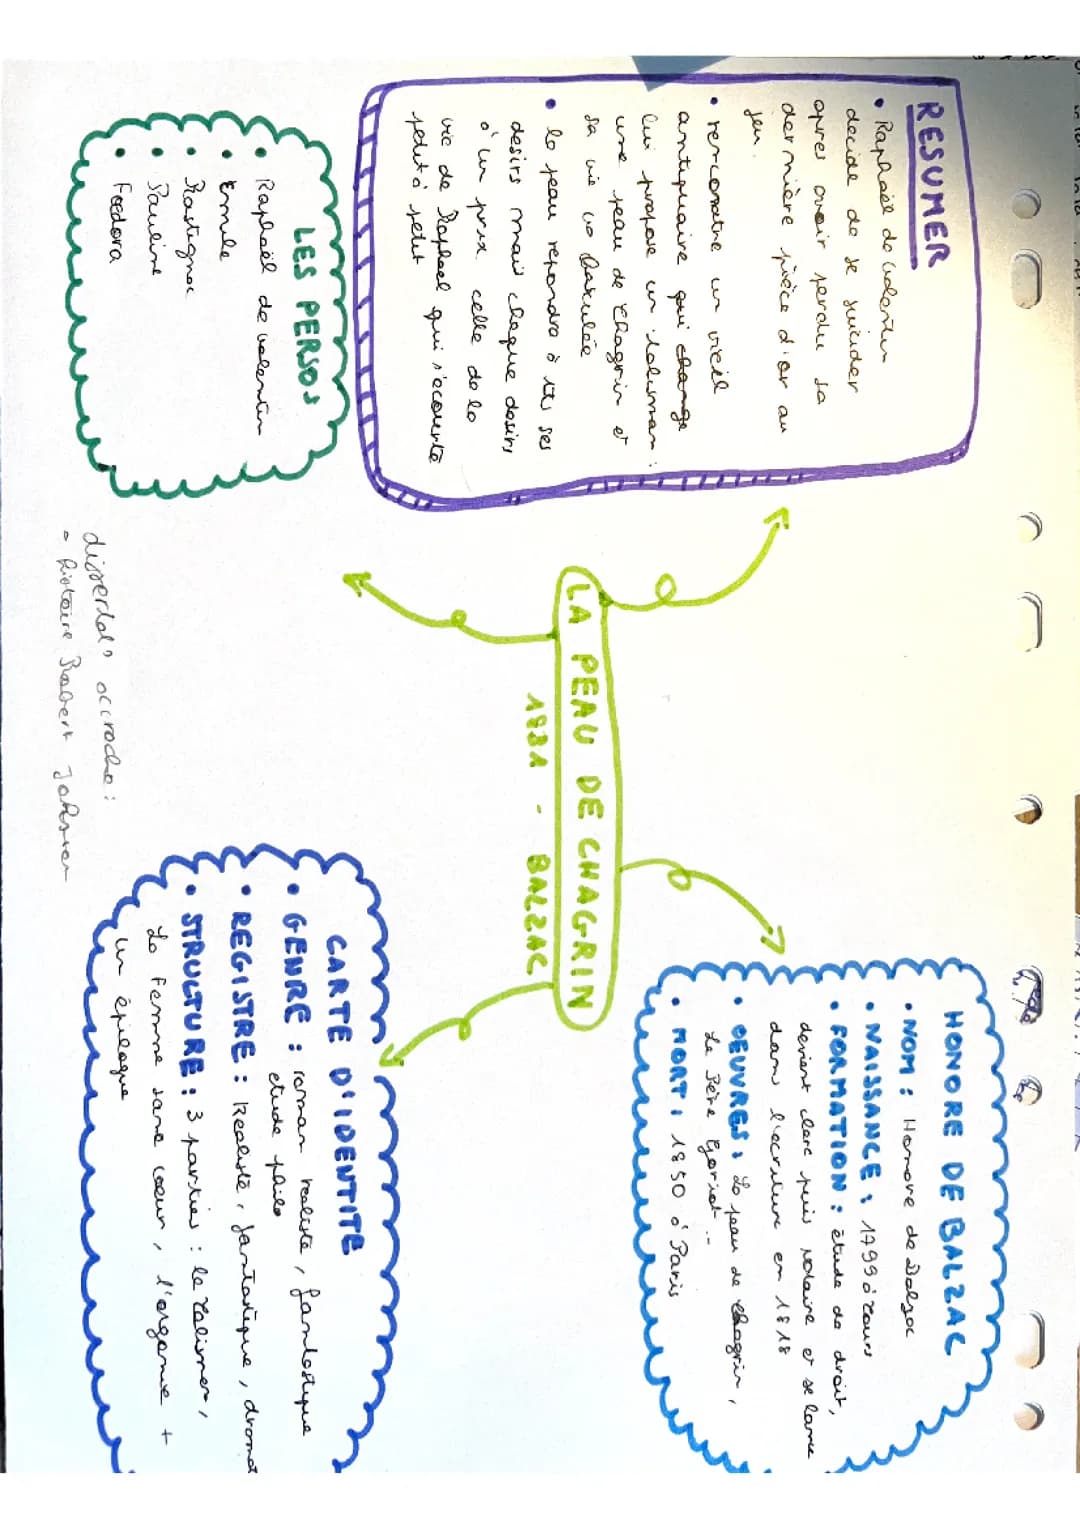 RESUMER
• Raphaël de Valentin
décide de se suicider
apres avoir perdu sa
dernière pièce d'or au
jeu.
• rencontre un vieil
antiquaire qui change
lui propose un talisman :
une peau de chagrin et
sa vie va basculée
• la peau repondra à ses
desirs mais chaque desirs
à un prix celle de la
vie de Raphael qui s'ecourte
petit à petit
LA PEAU DE CHAGRIN
1831 - BALZAC
HONORE DE BALZAC
• NOM : Honore de Balzac
• NAISSANCE : 1799 à Tours
• FORMATION : étude de droit,
devient clerc puis notaire et se lance
dans l'ecriture en 1818
• OEUVRES : La peau de chagrin,
Le Père Goriot ...
• MORT : 1850 à Paris
LES PERSOS
• Raphaël de valentin
• Emile
• Rastignac
• Pauline
• Foedora
CARTE D'IDENTITE
• GENRE : roman realiste, fantastique
etude philo
• REGISTRE : Réaliste, fantastique, dramat
• STRUCTURE : 3 parties : le Talisman,
La Femme sans coeur, l'agonie +
un épilogue
dissertat° accroche :
- histoire Robert Johnson